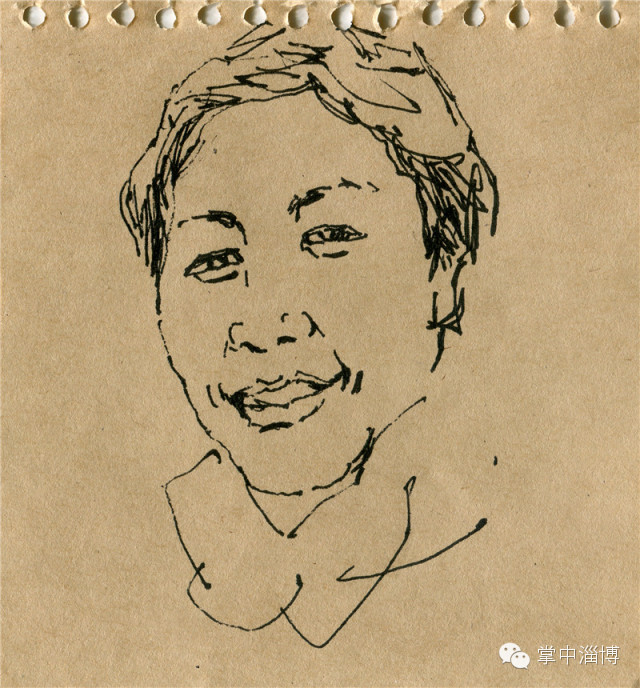 掌中淄博